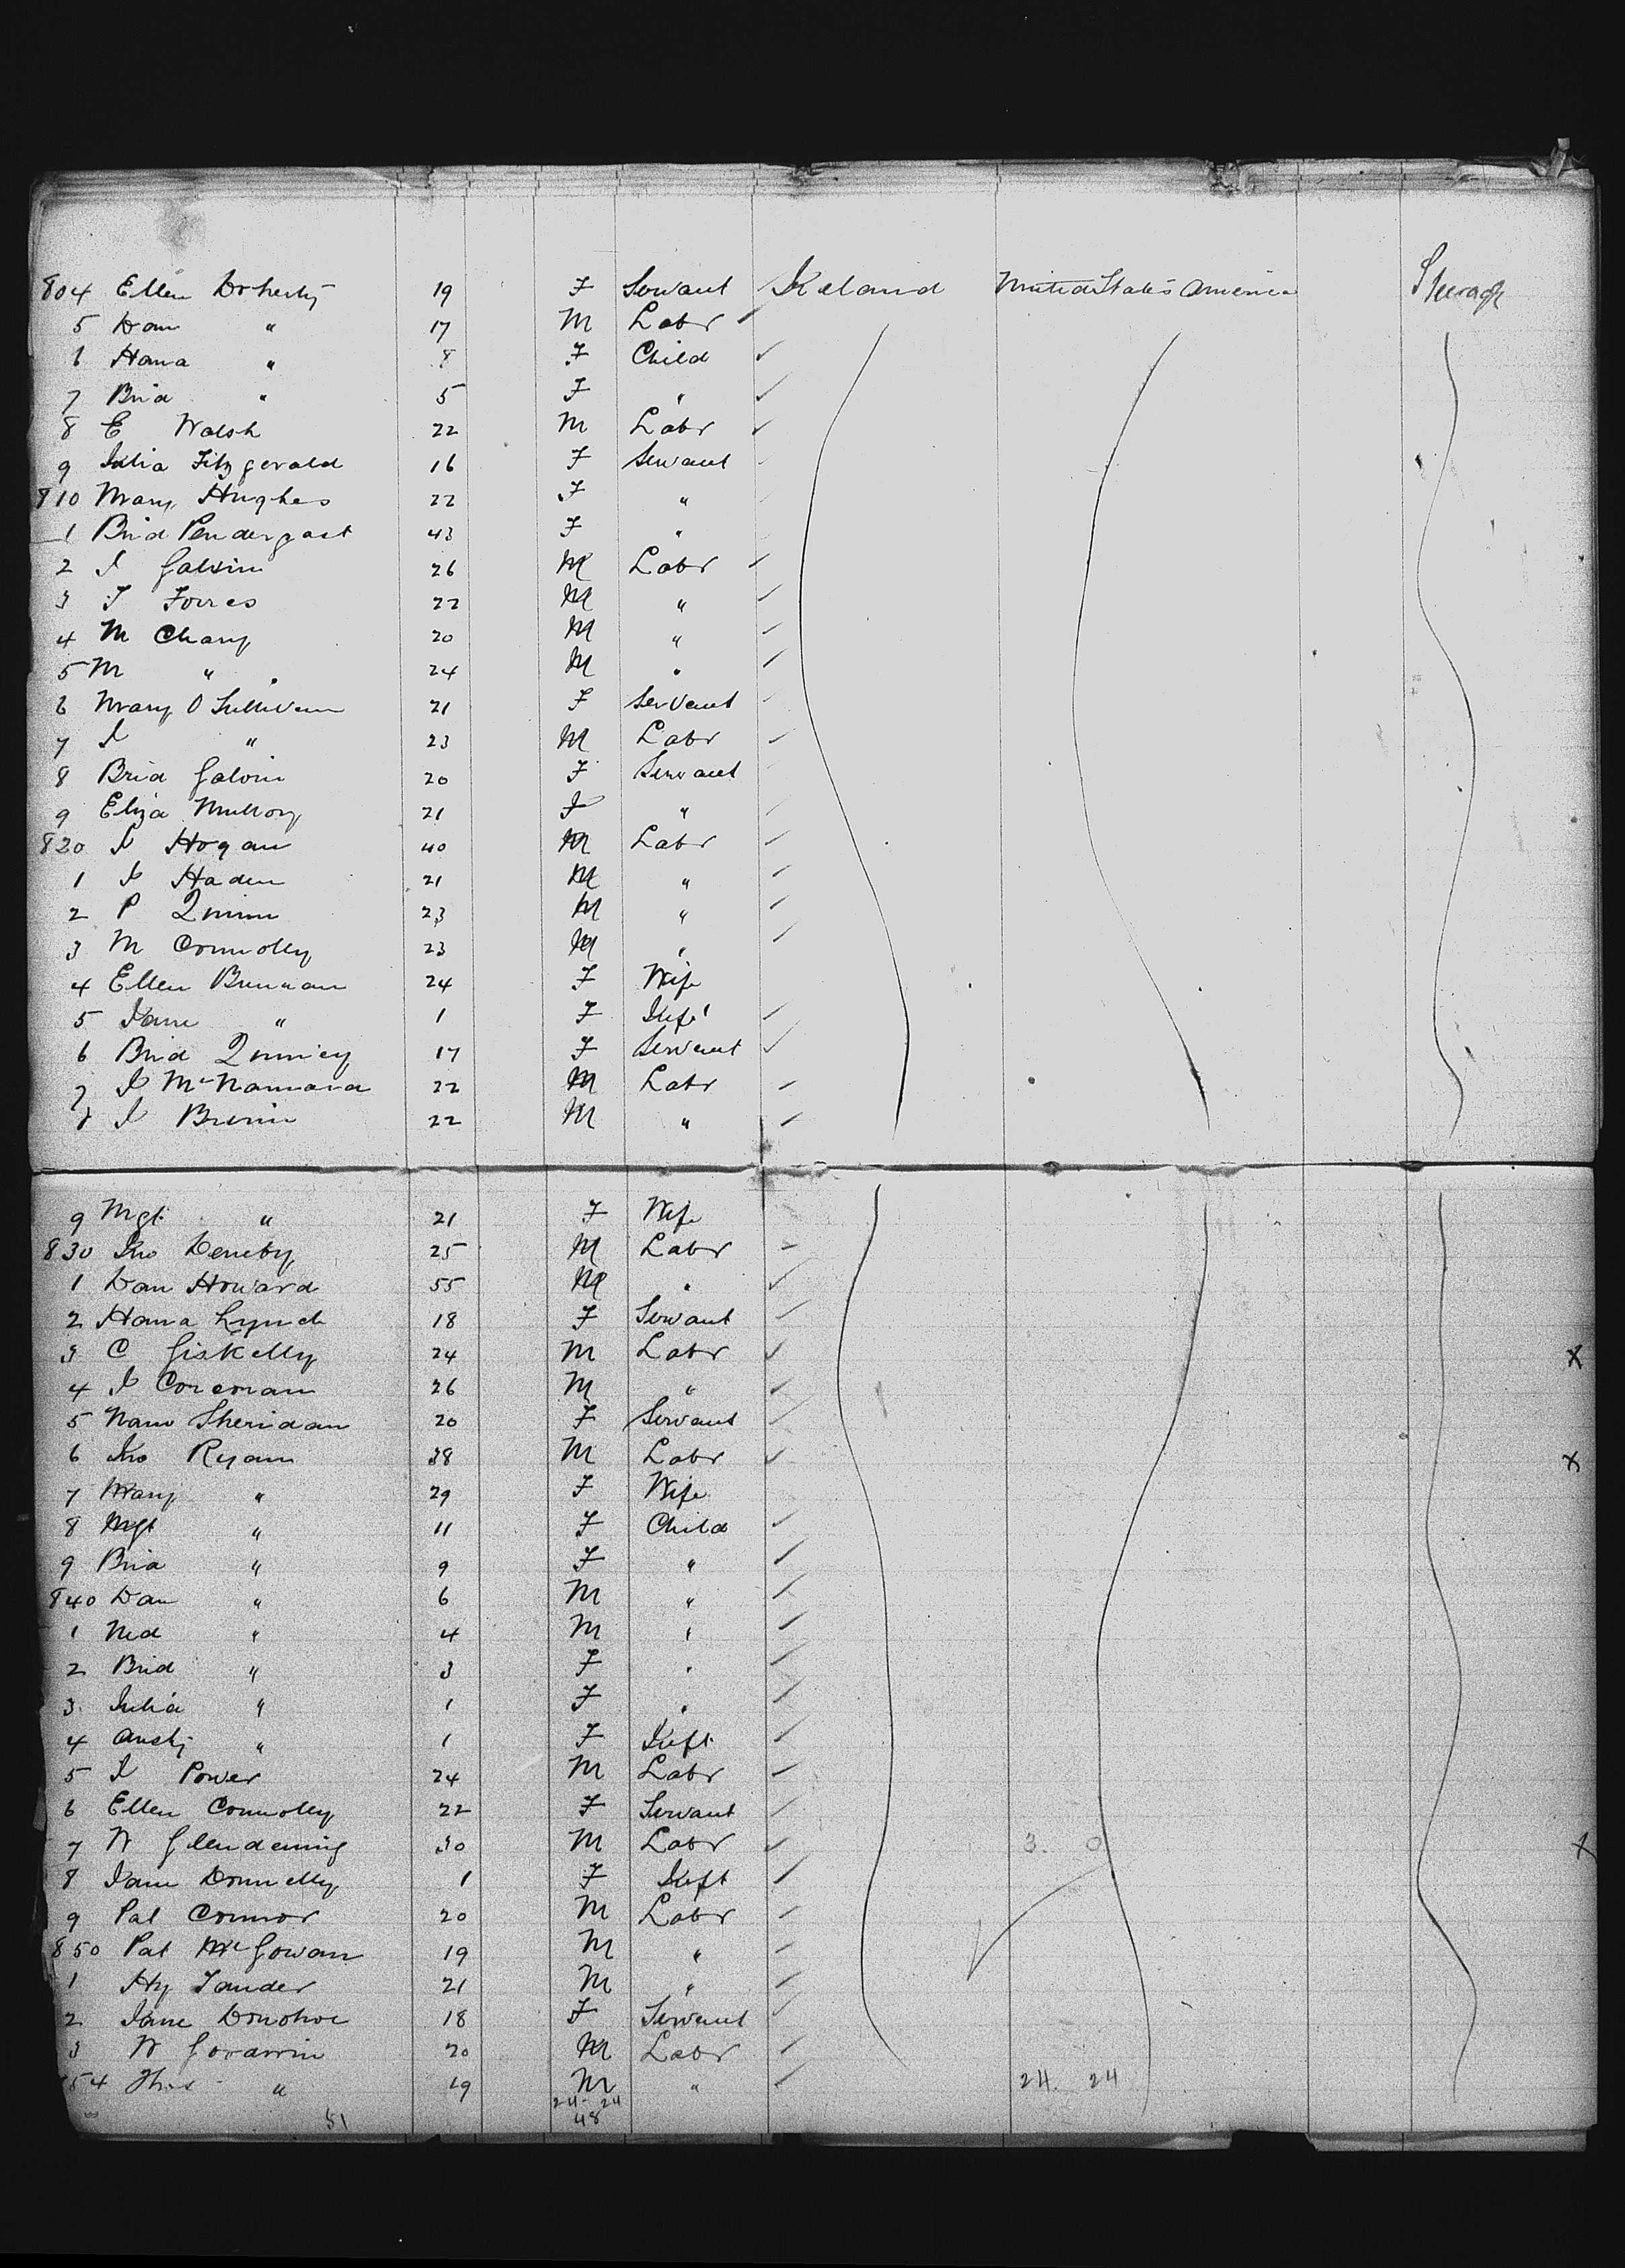 804 Ellen Doherty 19 F Servant Ireland United States America Steerage
5 Dan " 17 M Labr
6 Hana " 8 F Child
7 Brid " 5 F "
8 E Walsh 22 M Labr
9 Julia Fitzgerald 16 F Servant
810 Mary Hughes 22 F "
1 Brid Pendergast 43 F "
2 J Galvin 26 M Labr
3 T 22 M "
4 M Chary 20 M "
5 M " 24 M "
6 Mary O Sullivan 21 F Servant
7 J " 23 M Labr
8 Brid Galvin 20 F Servant
9 Eliza Mulloy 21 F "
820 J Hogan 40 M Labr
1 J Haden 21 M "
2 P Quinn 23 M "
3 M Connolly 23 M "
4 Ellen Brennan 24 F Wife
5 Jane " 1 F Inft
6 Brid 17 F Servant
7 J McNamara 22 M Labr
8 J 22 M "
9 Mgt " 21 F Wife
830 Jno 25 M Labr
1 Dan Howard 55 M "
2 Hana Lynch 18 F Servant
3 C Giskelly 24 M Labr X
4 J Corcoran 26 M "
5 Sheridan 20 F Servant
6 Jno Ryan 38 M Labr X
7 Mary " 29 F Wife
8 Mgt " 11 F Child
9 Brid " 9 F "
840 Dan " 6 M "
1 Ned " 4 M "
2 Brid " 3 F "
3 Julia " 1 F "
4 " 1 F Inft
5 J Power 24 M Labr
6 Ellen Connolly 22 F Servant
7 W Glendening 30 M Labr 3. 0 X
8 Jane Donnelly 1 F Inft
9 Pat Connor 20 M Labr
850 Pat McGowan 19 M "
1 Hy 21 M "
2 Jane Donohoe 18 F Servant
3 W 20 M Labr
854 Thos " 19 M " 24. 24
24-24
51 48